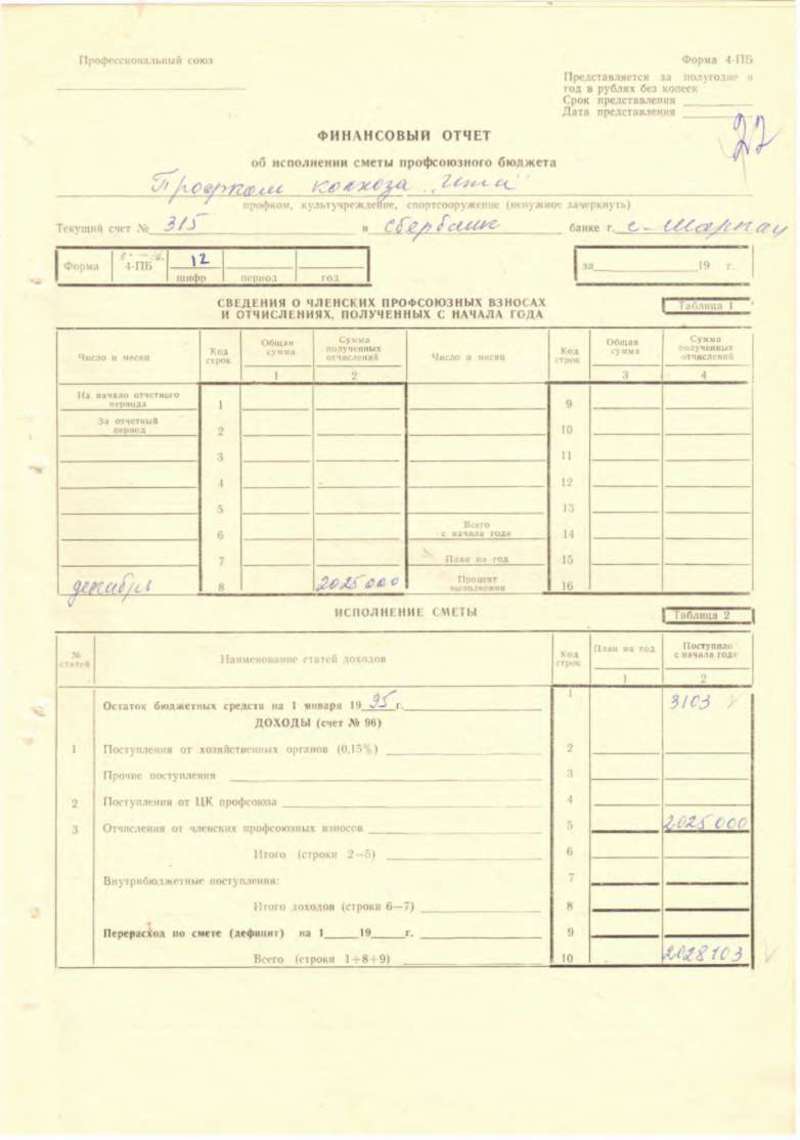 Профессиональный союз
Форма 4-ПБ
Представляется за полугодие и
год в рублях без копеек
Срок представления
Дата представления
22
ФИНАНСОВЫЙ ОТЧЕТ
об исполнении сметы профсоюзного бюджета
Профком колхоза
профком, культучреждение, спортсооружение (ненужное зачеркнуть)
Текущий счет № 315 в Сбербанк банке г. с.
Форма 4-ПБ 12
шифр период год
за 19 г.
СВЕДЕНИЯ О ЧЛЕНСКИХ ПРОФСОЮЗНЫХ ВЗНОСАХ
И ОТЧИСЛЕНИЯХ, ПОЛУЧЕННЫХ С НАЧАЛА ГОДА
Таблица 1
Число и месяц Код строк Общая сумма Сумма полученных отчислений Число и месяц Код строк Общая сумма Сумма полученных отчислений
1 2 3 4
На начало отчетного периода 1 9
За отчетный период 2 10
3 11
4 12
5 13
6 Всего с начала года 14
7 План на год 15
декабрь 8 2025000 Процент выполнения 16
ИСПОЛНЕНИЕ СМЕТЫ
Таблица 2
№ статей Наименование статей доходов Код строк План на год Поступило с начала года
1 2
Остаток бюджетных средств на 1 января 1995 г. 1 3103
ДОХОДЫ (счет № 96)
1 Поступления от хозяйственных органов (0,15%) 2
Прочие поступления 3
2 Поступления от ЦК профсоюза 4
3 Отчисления от членских профсоюзных взносов 5 2025000
Итого (строки 2—5) 6
Внутрибюджетные поступления: 7
Итого доходов (строки 6—7) 8
Перерасход по смете (дефицит) на 1 19 г. 9
Всего (строки 1+8+9) 10 2028103